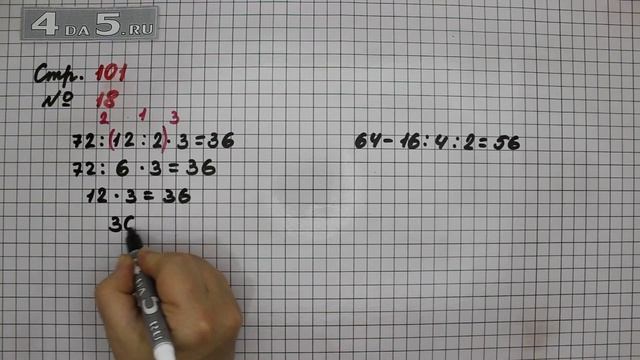 4 ДА 5.RU
Стр. 101
№ 18
2 1 3
72:(12:2)·3=36
72:6·3=36
12·3=36
36
64-16:4:2=56
ДА 5.RU